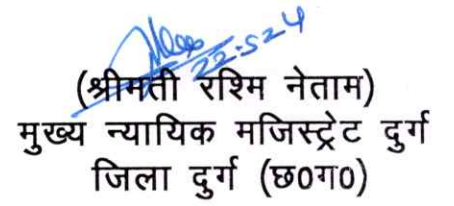 22-5-24
(श्रीमती रश्मि नेताम)
मुख्य न्यायिक मजिस्ट्रेट दुर्ग
जिला दुर्ग (छ0ग0)